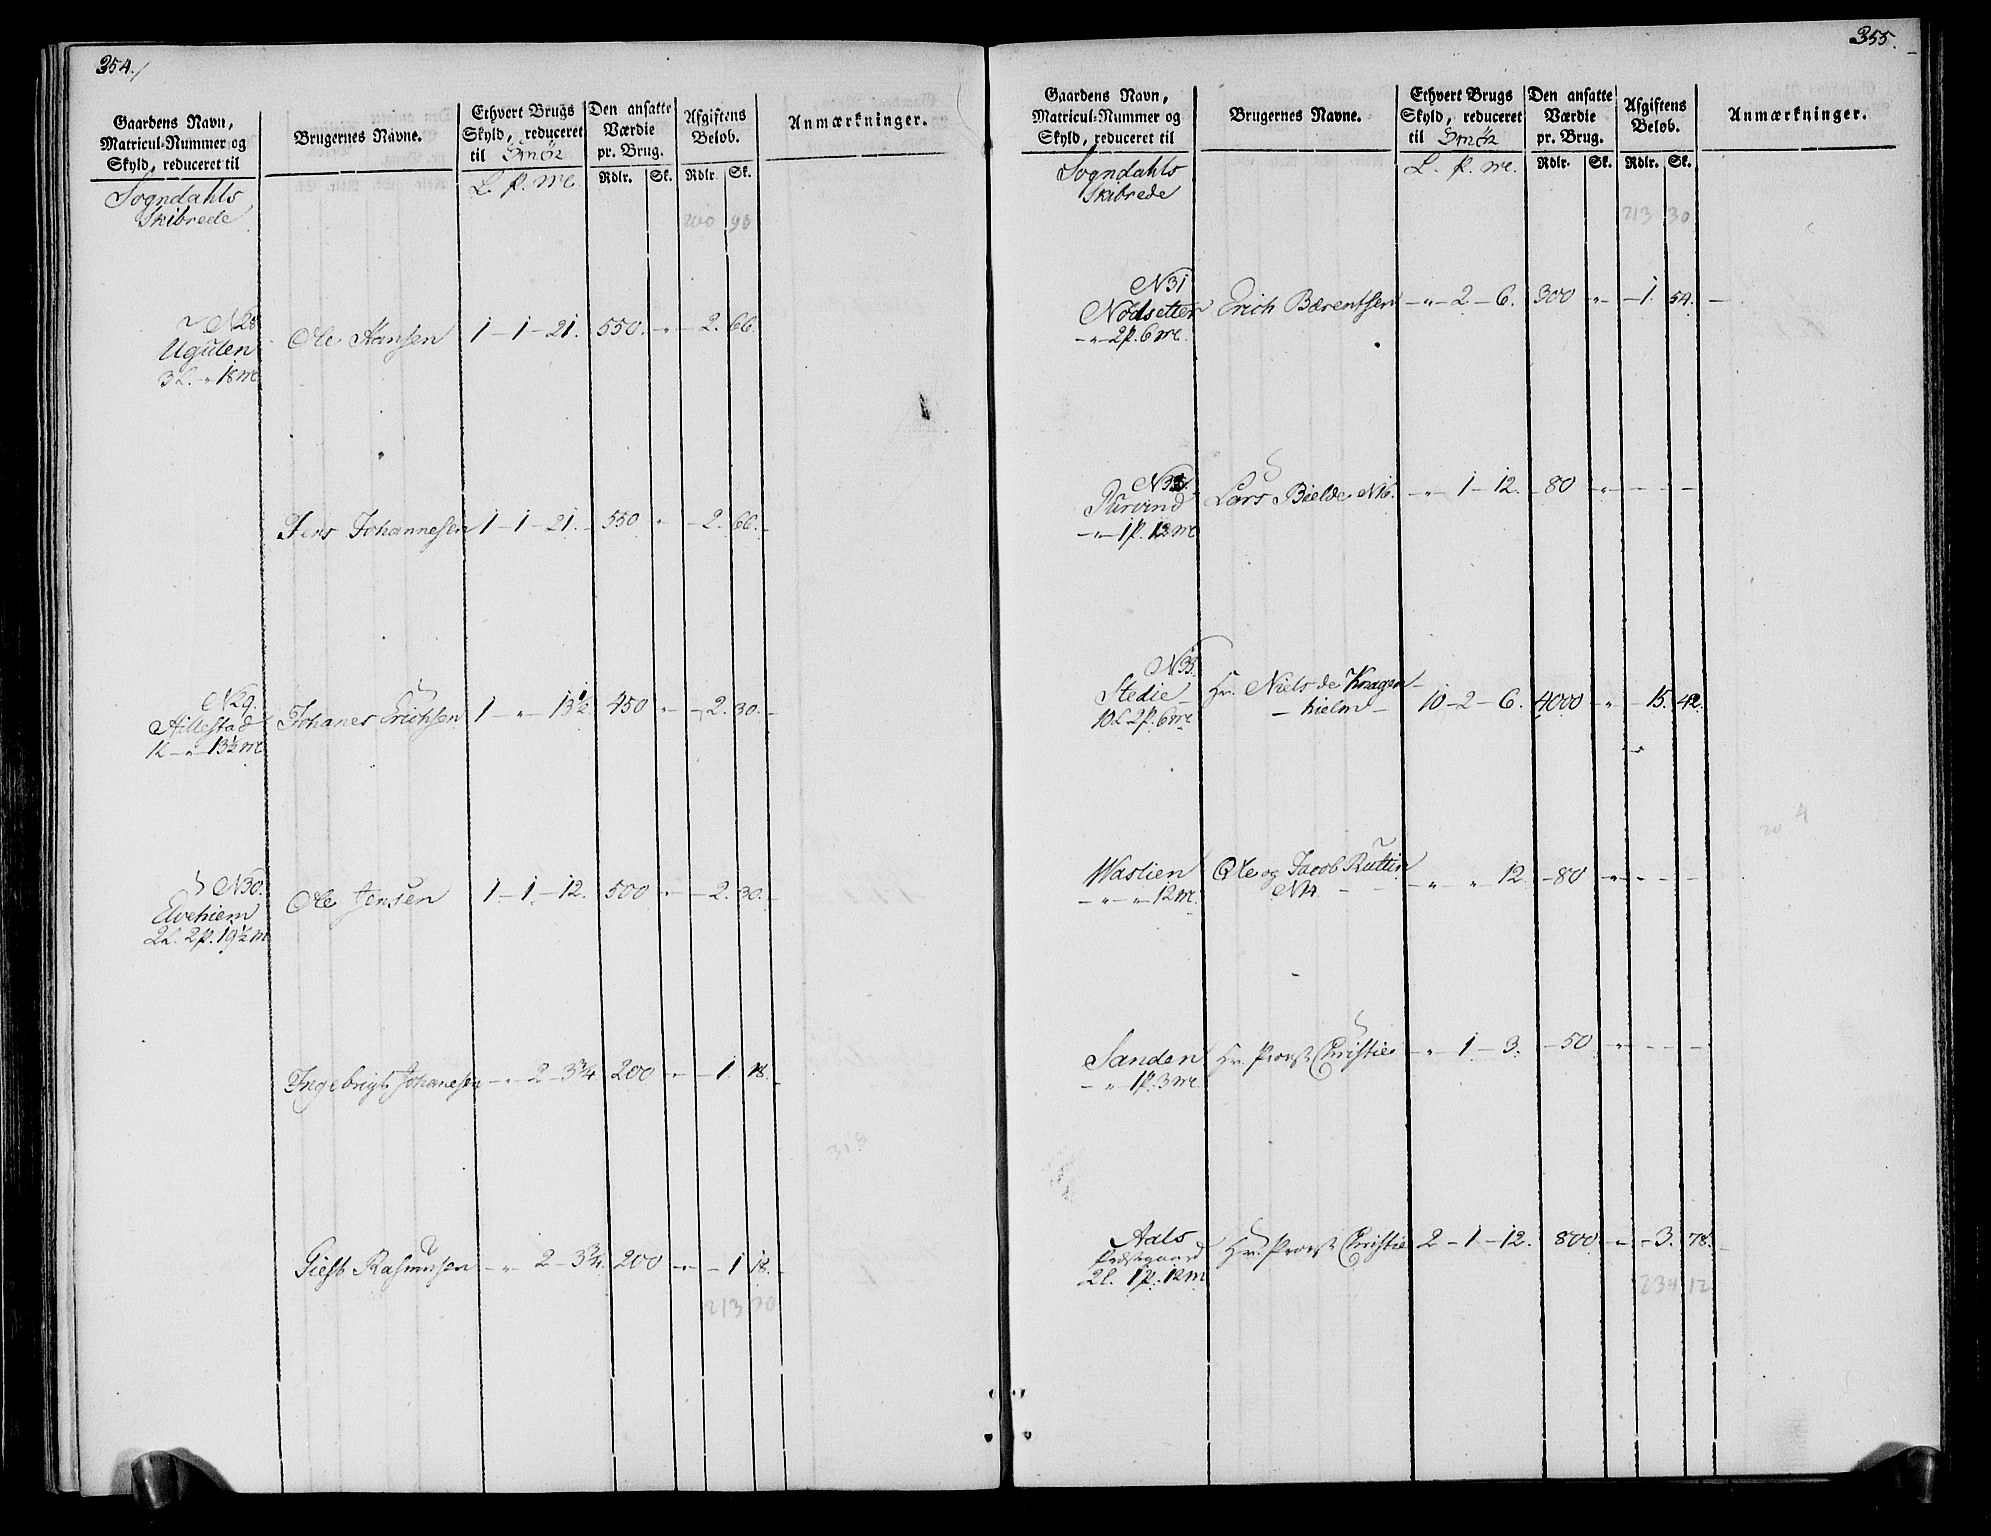 354.
Gaardens Navn,
Matricul-Nummer og
Skyld, reduceret til
Brugernes Navne.
Ethvert Brugs
Skyld, reduceret
til Smör
Den ansatte
Værdie
pr. Brug.
Afgiftens
Beløb.
Anmærkninger.
L. p. mk.
Rdlr. Sk. Rdlr. Sk.
Sogndahls
Skibrede
200 90
N 28
Ugulen
3 L. " 18 mk
Ole Hansen 1 - 1 - 21. 550. " - 2. 66.
Jens Johannesen 1 - 1 - 21. 550 " - 2. 66.
N 29.
Hillestad
1L - " - 13½ mk
Johanes Erichsen 1 - " - 13½ 450 " - 2. 30.
N 30.
Elvehiem
2L. 2p. 19½ m
Ole Jensen 1 - 1 - 12. 500 " - 2. 30.
Ingebrigt Johanesen - " 2 - 3¾ 200 " - 1. 18.
Giest Rasmusen - " 2 - 3¾ 200 " - 1 18.
213 30
355.
Gaardens Navn,
Matricul-Nummer og
Skyld, reduceret til
Brugernes Navne.
Ethvert Brugs
Skyld, reduceret
til Smör
Den ansatte
Værdie
pr. Brug.
Afgiftens
Beløb.
Anmærkninger.
L. p. mk.
Rdlr. Sk. Rdlr. Sk.
Sogndahls
Skibrede
213 30
N 31
Nodsetter
- " - 2p. 6 mk.
Erich Bærentsen - " - 2 - 6. 300 " - 1. 54.
- " - 1p. 12 mk
Lars Bielde N 16. - " 1 - 12. - 80 "
N 33.
Stedie
10 L 2p. 6 mk
Hr. Niels de Knagen-
hielm 10 - 2 - 6. 4000 " - 15. 42.
Waslien
- " - " - 12 m.
Ole og Jacob Rutlin
N 14 - " " 12. - 80 "
Sanden
- " 1p. 3 mk
Hr. Provst Christie - " 1 - 3. - 50 "
Aals
Præstgaard
2 L. 1p. 12 m
Hr. Provst Christie 2 - 1 - 12. 800 " - 3. 78.
234 12